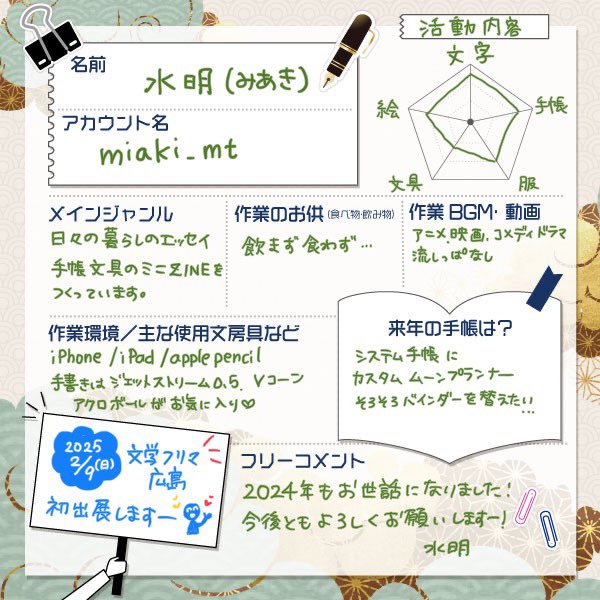 名前
水明(みあき)
アカウント名
miaki_mt
活動内容
文字
手帳
服
文具
絵
メインジャンル
日々の暮らしのエッセイ
手帳文具のミニZINEを
つくっています。
作業のお供(食べ物・飲み物)
飲まず食わず…
作業BGM・動画
アニメ、映画、コメディドラマ
流しっぱなし
作業環境/主な使用文房具など
iPhone / iPad / apple pencil
手書きは ジェットストリーム0.5、Vコーン
アクロボールがお気に入り♡
来年の手帳は?
システム手帳に
カスタム ムーンプランナー
そろそろバインダーを替えたい…
2025
2/9(日)
文学フリマ
広島
初出展しますー
フリーコメント
2024年もお世話になりました!
今後ともよろしくお願いしますー!
水明